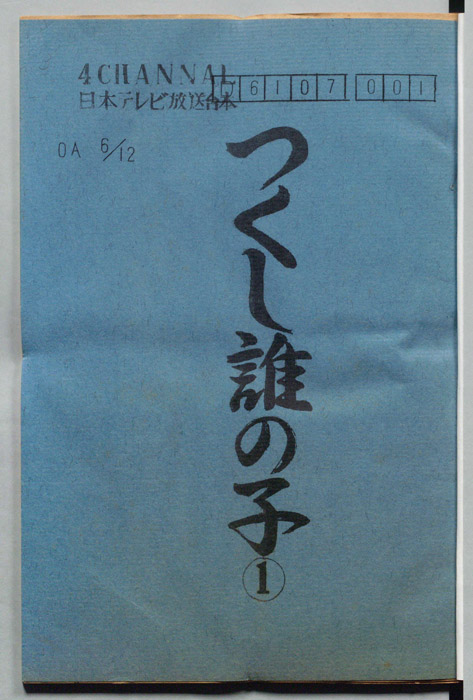 4CHANNAL
日本テレビ放送台本
6107 001
OA 6/12
つくし誰の子
①